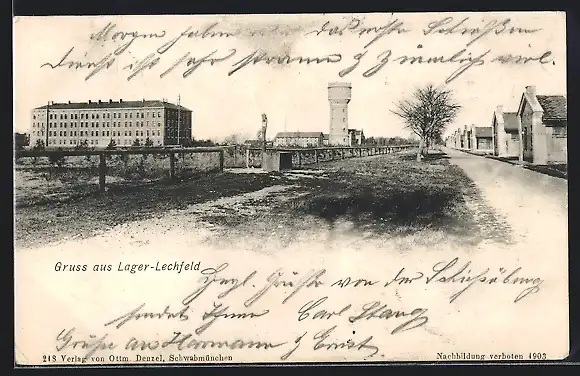 Morgen haben das erste Schießen
Dienst ist sehr stramm & ziemlich viel.
Gruss aus Lager-Lechfeld
Herzl. Grüße von der Schießübung
sendet Ihnen Carl Stang
Grüße an Hermann & Ernst
218 Verlag von Ottm. Denzel, Schwabmünchen
Nachbildung verboten 1903